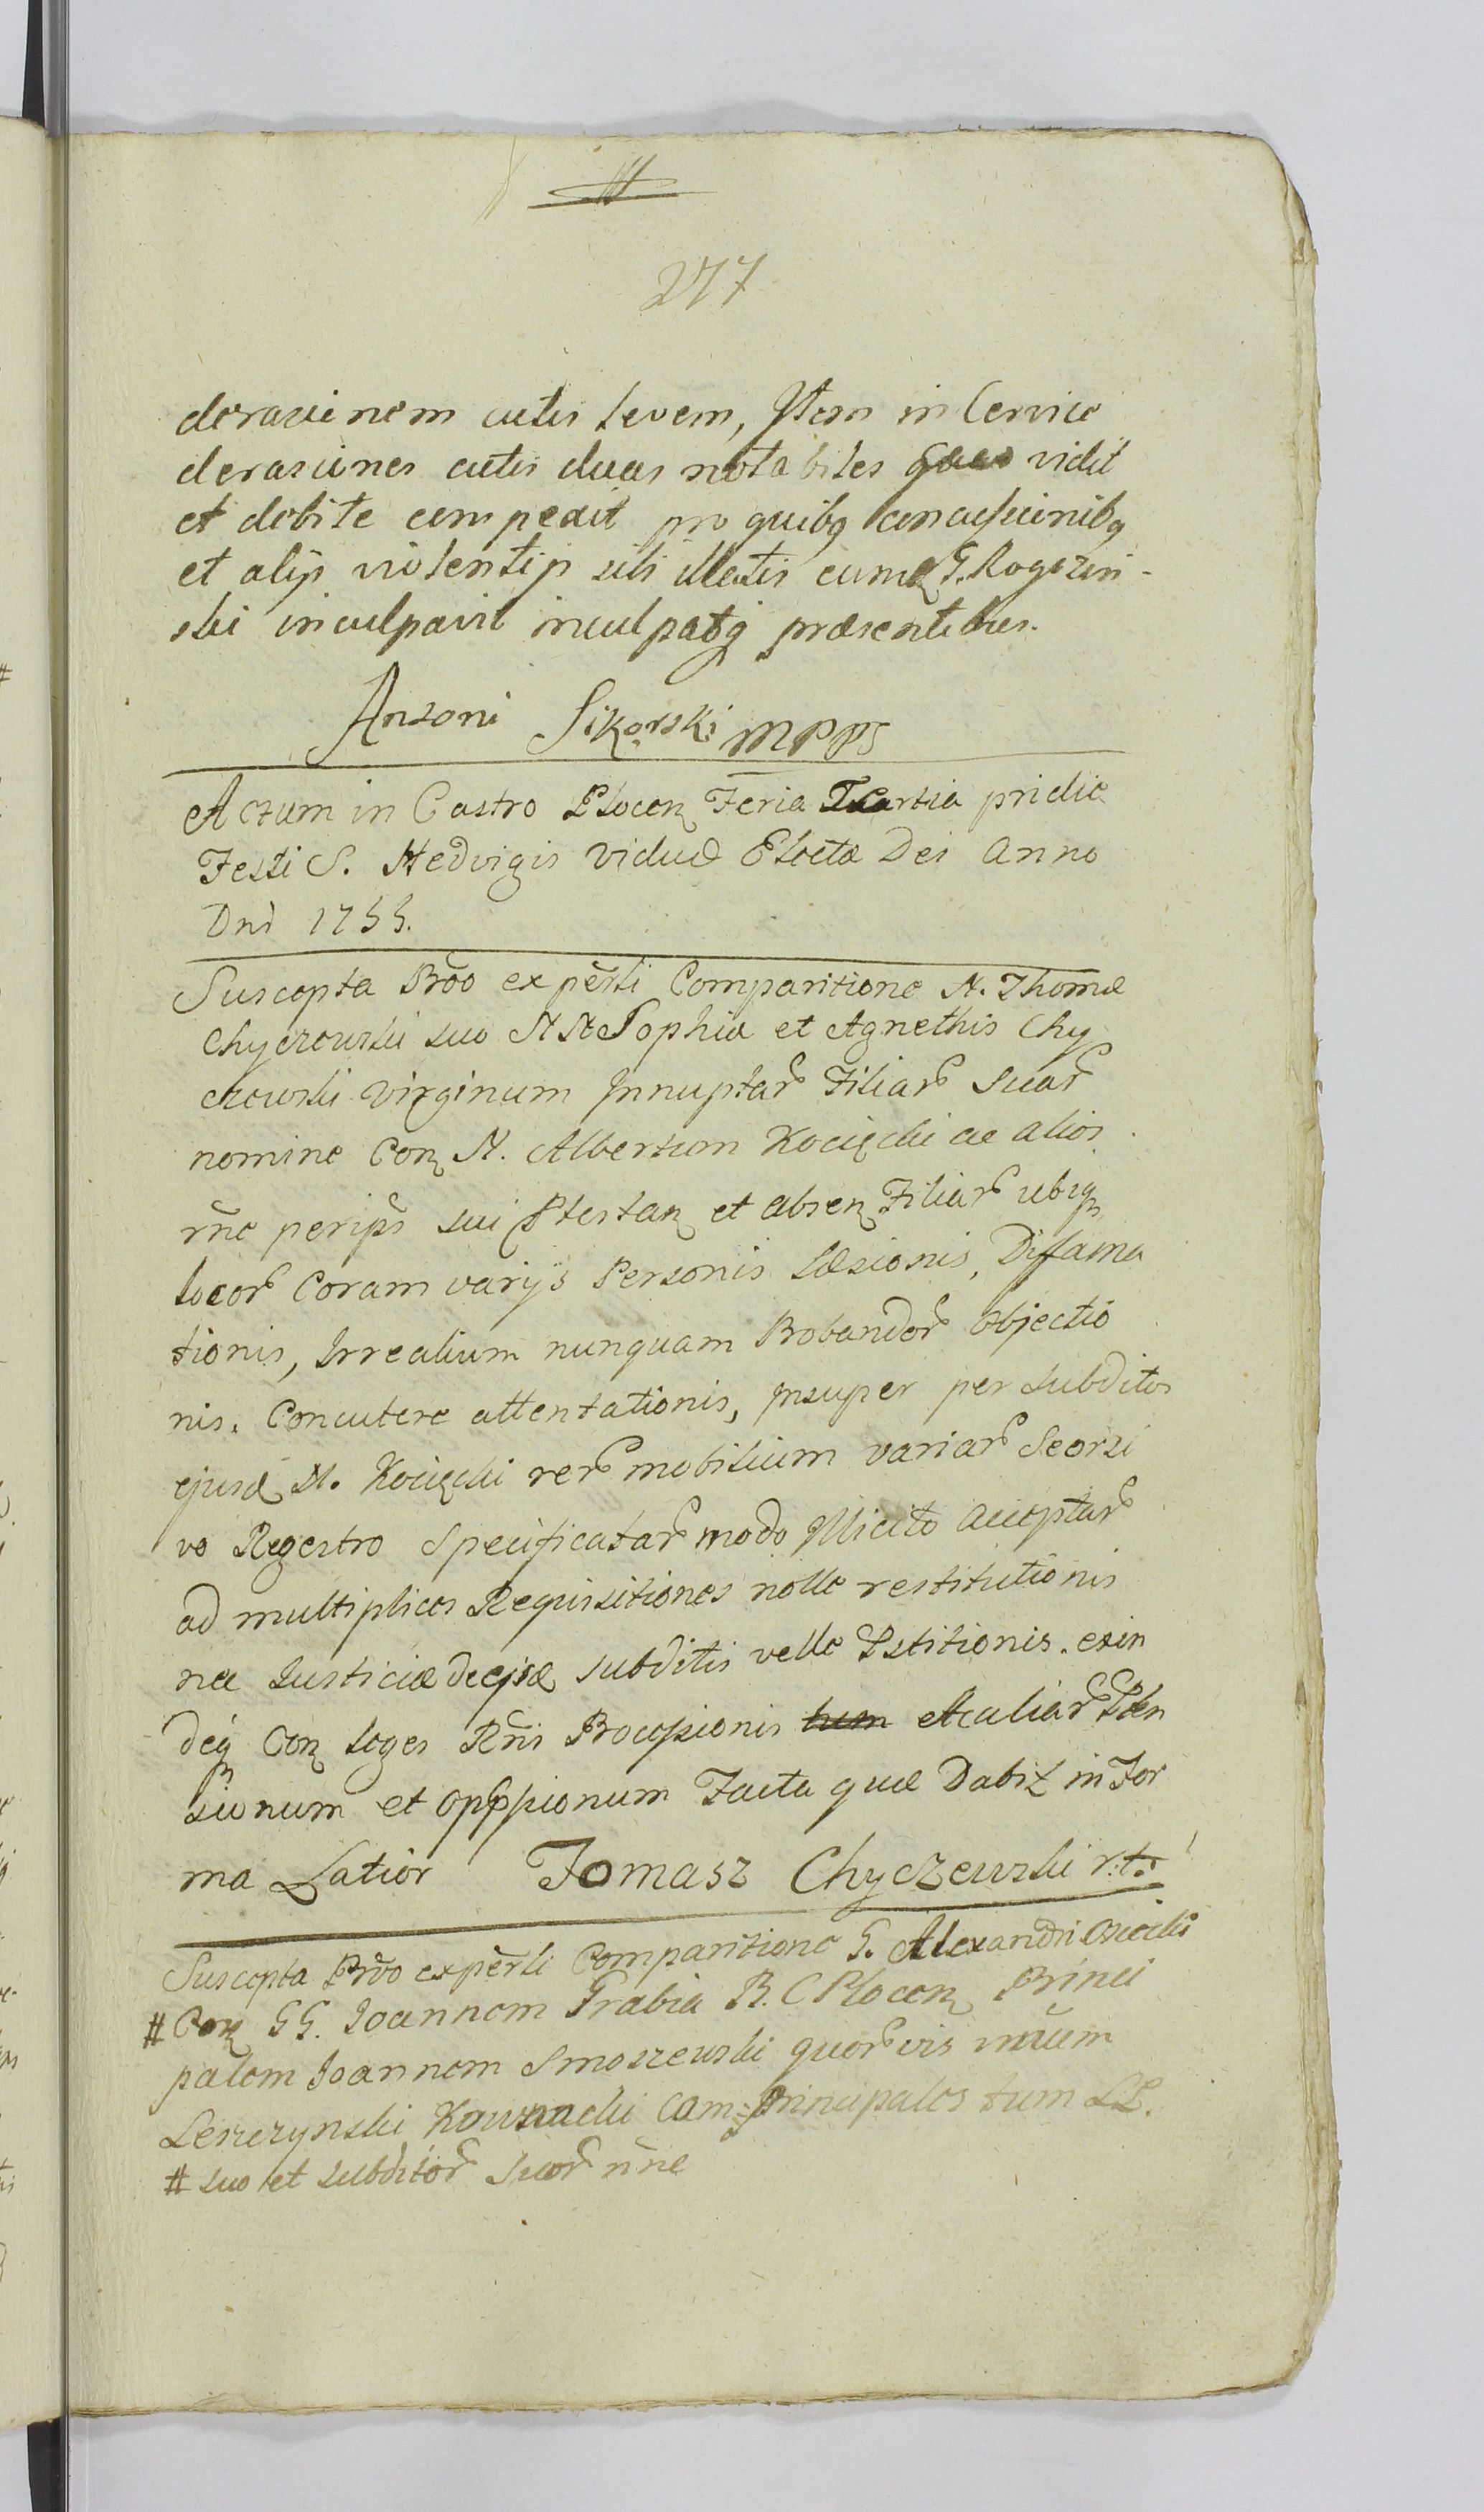 277
derasionem cutis levem, Item in Cervice
derasiones cutis duas notabiles quas vidit
et debite comperit pro quibq concussionibq
et alijs violentijs sibi illatis eumq G. Rogozin-
ski inculpavit inculpatq præsentibus.
Antoni Sikorski mpps
Actum in Castro Plocen Feria Tertia pridie
Festi S. Hedvigis Viduæ Electæ Dei Anno
Dni 1755.
Suscepta Prõo expẽrti Comparitione N. Thomæ
Chyczewski suo NN Sophiæ et Agnethis Chy
czewski Virginum Innuptar Filiar Suar
nomine Con N. Albertum Kocięcki ac alios
rñe peripš sui Ptestan et absen Filiar ubiq
locor Coram varijs Personis Læsionis, Diffama
tionis, Irrealium nunquam Probandor Objectio
nis, Concutere attentationis, Insuper per subditos
ejusd N. Kocięcki rer mobilium variar Seorsi
vo Regestro Specificatar modo Illicito Acceptar
ad multiplices Requisitiones nolle restitutionis
nec Justiciæ de ejsd subditis velle Pstitionis. exin
deq Con leges Rñis Processionis Aculiar Sten
sionum et Opppionum Facta quæ Dabit in For
ma Latior Tomasz Chyczewski r.t.
Suscepta Prõo expẽrti Comparitione G. Alexandri Osiecki
# Con GG. Joannem Grabia B. C Plocen Princi
palem Joannem Smoszewski quorvis unum
Leszczynski Kownacki Comprincipales tum LL.
# suo et subditor suor nñe